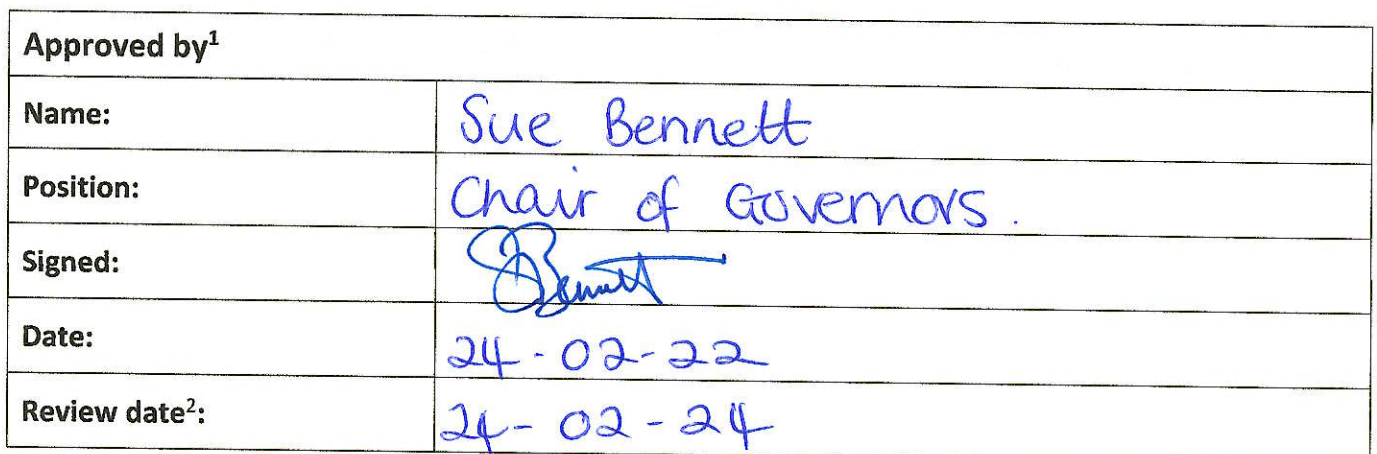 Approved by¹
Name: Sue Bennett
Position: Chair of Governors.
Signed: SBennett
Date: 24-02-22
Review date²: 24-02-24